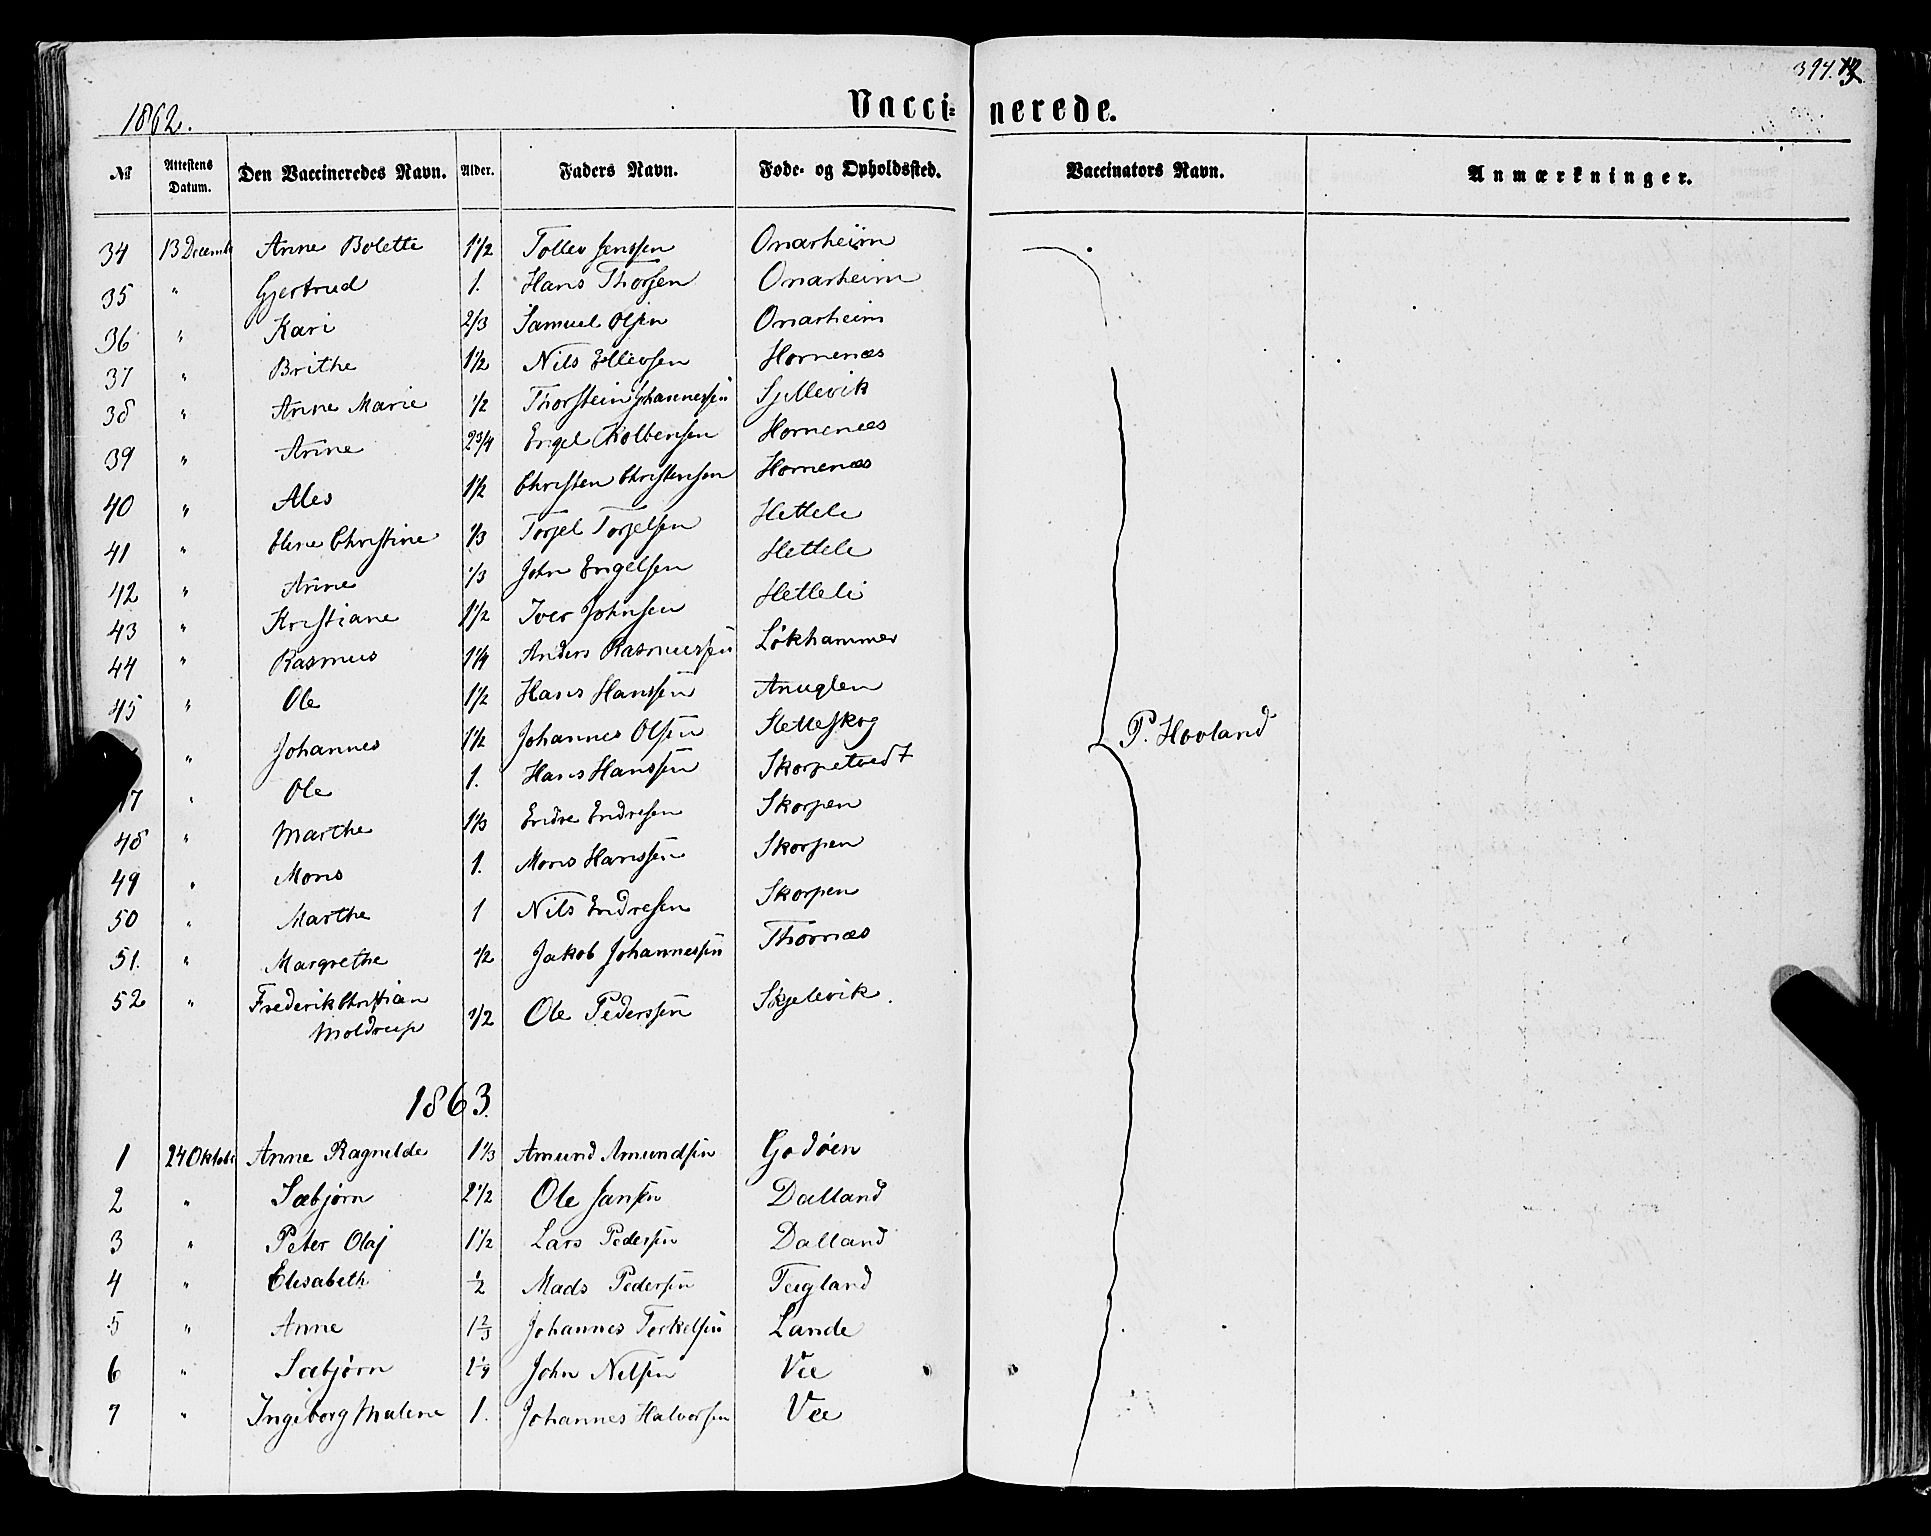 394.
1862.
Vacci- nerede.
No Attestens Datum. Den Vaccineredes Navn. Alder. Faders Navn. Føde- og Opholdssted. Vaccinators Navn. Anmærkninger.
34 13 Decemb Anne Bolette 1 1/2 Tollev Jenssen Onarheim
35 " Gjertrud 1. Hans Thorsen Onarheim
36 " Kari 2/3 Samuel Olsen Onarheim
37 " Brithe 1 1/2 Nils Ellevsen Hornenæs
38 " Anne Marie 1/2 Thorstein Johannessen Sjellevik
39 " Anne 2 3/4 Engel Kolbensen Hornenæs
40 " Ales 1 1/2 Christen Christensen Hornenæs
41 " Elene Christine 1/3 Torjel Torjelsen Hettele
42 " Anne 1/3 John Engelsen Hettele
43 " Kristiane 1 1/2 Iver Johnsen Hetteli
44 " Rasmus 1 1/4 Anders Rasmussen Løkhammer
45 " Ole 1 1/2 Hans Hanssen Anuglen
" Johannes 1 1/2 Johannes Olsen Sletteskog
P. Hovland
7 " Ole 1. Hans Hanssen Skorpetvedt
48 " Marthe 1 1/3 Endre Endresen Skorpen
49 " Mons 1. Mons Hanssen Skorpen
50 " Marthe 1 Nils Endresen Skorpen
51. " Margrethe 1/2 Jakob Johannessen Thornæs
52 " Frederik Christian Moldrup 1/2 Ole Pederssen Skjelevik.
1863.
1 24 Oktobe Anne Ragnilde 1 1/3 Amund Amundsen Godøen
2 " Sæbjørn 2 1/2 Ole Jansen Dalland
3 " Peter Olaj 1 1/2 Lars Pedersen Dalland
4 " Elisabeth 1/2 Mads Pedersen Teigland
5 " Anne 1 2/3 Johannes Terkelsen Lande
6 " Sæbjørn 2 1/4 John Nelsen Vee
7 " Ingeborg Malene 1. Johannes Halvorsen Vee